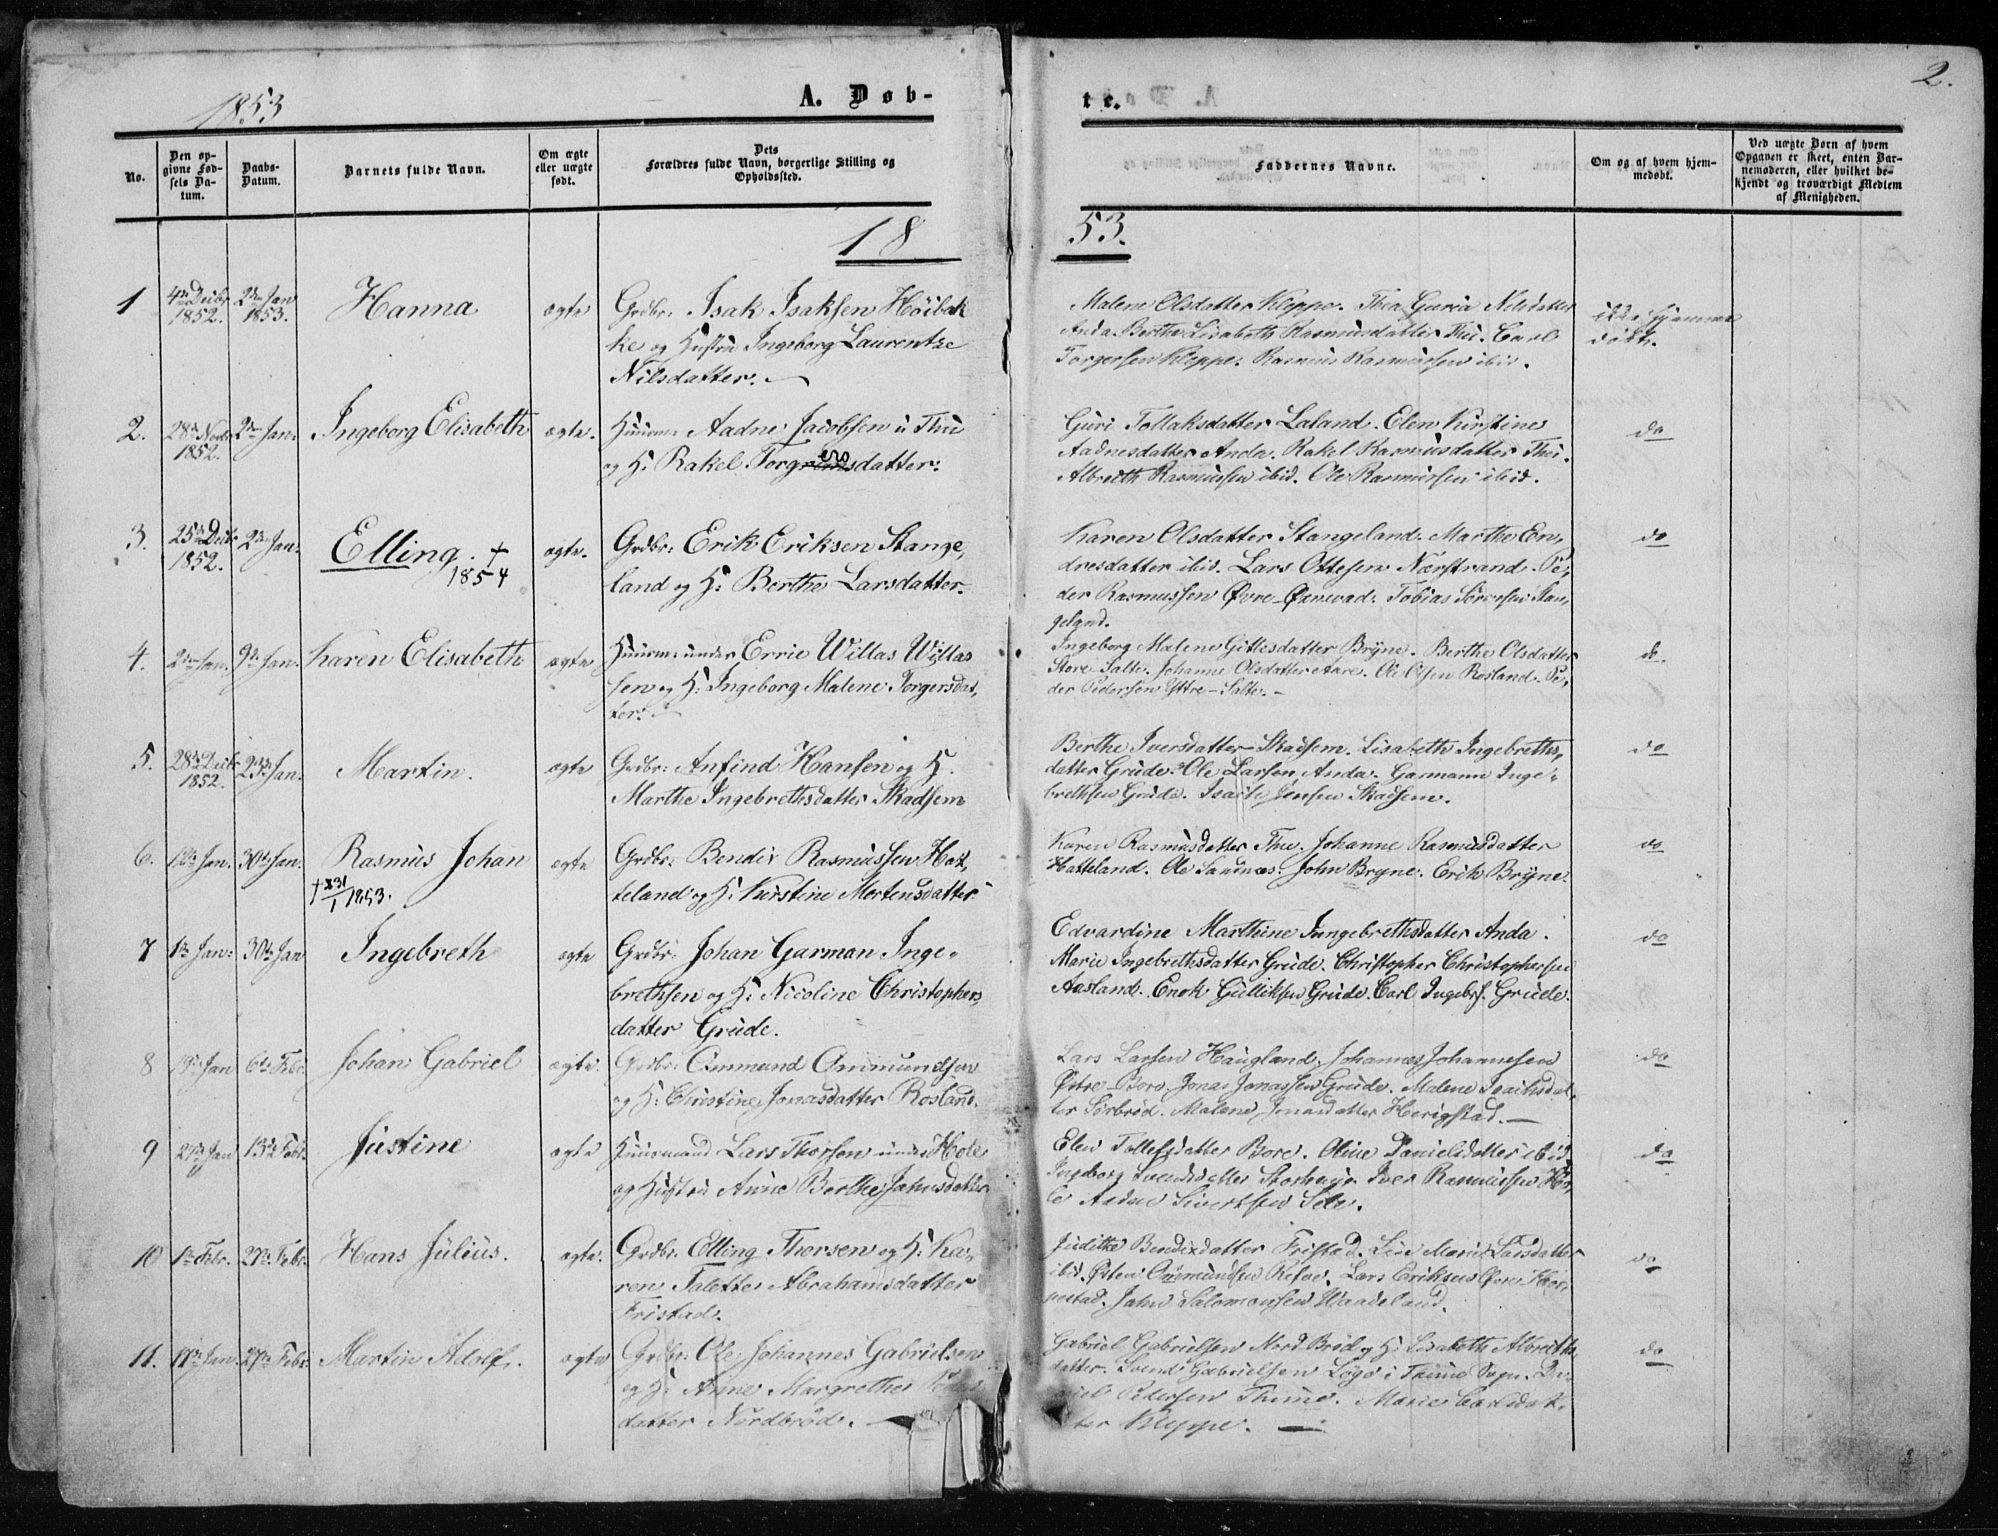 1853
A. Døb-
te.
2.
No.
Den op-
givne Fød-
sels Da-
tum.
Daabs-
Datum.
Barnets fulde Navn.
Om ægte
eller uægte
født.
Dets
Forældres fulde Navn, borgerlige Stilling og
Opholdssted.
Faddernes Navne.
Om og af hvem hjem-
medøbt.
Ved uægte Børn af hvem
Opgaven er skeet, enten Bar-
nemoderen, eller hvilket be-
kjendt og troværdigt Medlem
af Menigheden.
18
53.
1
4de Decbr
1852.
2den Jan
1853.
Hanna
ægte
Grdbr: Isak Isaksen Höibak
ke og Hustru Ingeborg Laurentze
Nilsdatter.
Malene Olsdatter Kleppe. Guria Nilsdatter
Anda. Berthe Lisabeth Rasmusdatter Thu. Carl
Torgersen Kleppe. Rasmus Rasmussen ibid.
ikke hjemme
døbt.
2.
28de Novbr
1852.
2den Jan:
Ingeborg Elisabeth
ægte.
Huusm: Aadne Jacobsen u: Thu
og H: Rakel Torgersdatter.
Guri Tollaksdatter Laland. Elen Kirstine
Aadnesdatter Anda. Rakel Rasmusdatter Thu.
Albreth Rasmussen ibid. Ole Rasmussen ibid.
do
3.
25de Decbr
1852.
2den Jan:
Elling. †
1854
ægte.
Grdbr: Erik Eriksen Stange,
land og H: Berthe Larsdatter.
Karen Olsdatter Stangeland. Marthe En,
dresdatter ibid. Lars Ottesen Nærstrand. Pe,
der Rasmussen Øvre-Øxnevad. Tobias Sørensen Stan,
geland.
do
4.
2den Jan.
9de Jan.
Karen Elisabeth
ægte
Huusm: under Errie Willas Willas
sen og H: Ingeborg Malene Torgersdat,
ter.
Ingeborg Malene Gittlesdatter Bryne. Berthe Olsdatter
Store-Salte. Johanne Olsdatter Aare. Ole Olsen Rosland. Pe,
der Pedersen Yttre-Salte.-
do
5.
28de Decbr
1852.
23de Jan.
Martin.
ægte
Grdbr: Anfind Hansen og H.
Marthe Ingebrethsdatter Skadsem
Berthe Iversdatter Skadsem. Lisabeth Ingebreths,
datter Grude. Ole Larsen Anda. Garmann Inge,
brethsen Grude. Isach Jonsen Skadsem.
do
6.
Jan.
30te Jan.
Rasmus Johan
† 31/1 1853.
ægte
Grdbr: Bendix Rasmussen Hat,
teland og H: Kirstine Mortensdatter
Karen Rasmusdatter Thu. Johanne Rasmusdatter
Hatteland. Ole Sandnæs. John Bryne. Erik Bryne.
do
7
1ste Jan:
30te Jan
Ingebreth
ægte
Grdbr: Johan Garman Inge,
brethsen og H: Nicoline Christophers
datter Grude.
Edvardine Marthine Ingebrethsdatter Anda.
Marie Ingebrethsdatter Grude. Christopher Christophersen
Aasland. Enok Gulliksen Grude. Carl Ingebrs. Grude.
do
8
19de Jan
6te Febr.
Johan Gabriel
ægte.
Grdbr: Ommund Ommundsen
og H: Christine Jonasdatter Rosland.
Lars Larsen Haugland. Johannes Johannesen
Østre-Bore. Jonas Jonassen Grude. Malene Isachsdat,
ter Sørbrød. Malene Jonasdatter Herigstad.
do
9
27de Jan
13de Febr.
Justine
ægte
Huusmand Lars Thorsen under Hole
og Hustru Anne Berthe Jahnsdatter
Elen Tollefsdatter Bore. Oline Danielsdatter ibid.
Ingeborg Svendsdatter Storhaug. Iver Rasmussen Ho,
le Aadne Sivertsen Sele.
do
10
1ste Febr.
27de Febr.
Hans Julius.
ægte.
Grdbr: Elling Thorsen og H: Ka,
ren Talette Abrahamsdatter
Fristad.
Judithe Bendixdatter Fristad. Marie Larsdatter
ibid. Østen Ommundsen Refve. Lars Eriksen Øvre Hær,
pestad. Jahn Salomonsen Waadeland.
do
11.
Jan.
27de Febr.
Martin Adolf.
ægte
Grdbr: Ole Johannes Gabrielsen
og H: Anne Margrethe Peders
datter Nordbrød.
Gabriel Gabrielsen Nord Brød og H: Lisabeth Albreths
datter. Svend Gabrielsen Løge i Thime Sogn. Da,
niel Petersen Thime. Marie Carlsdat,
ter Kleppe.
do